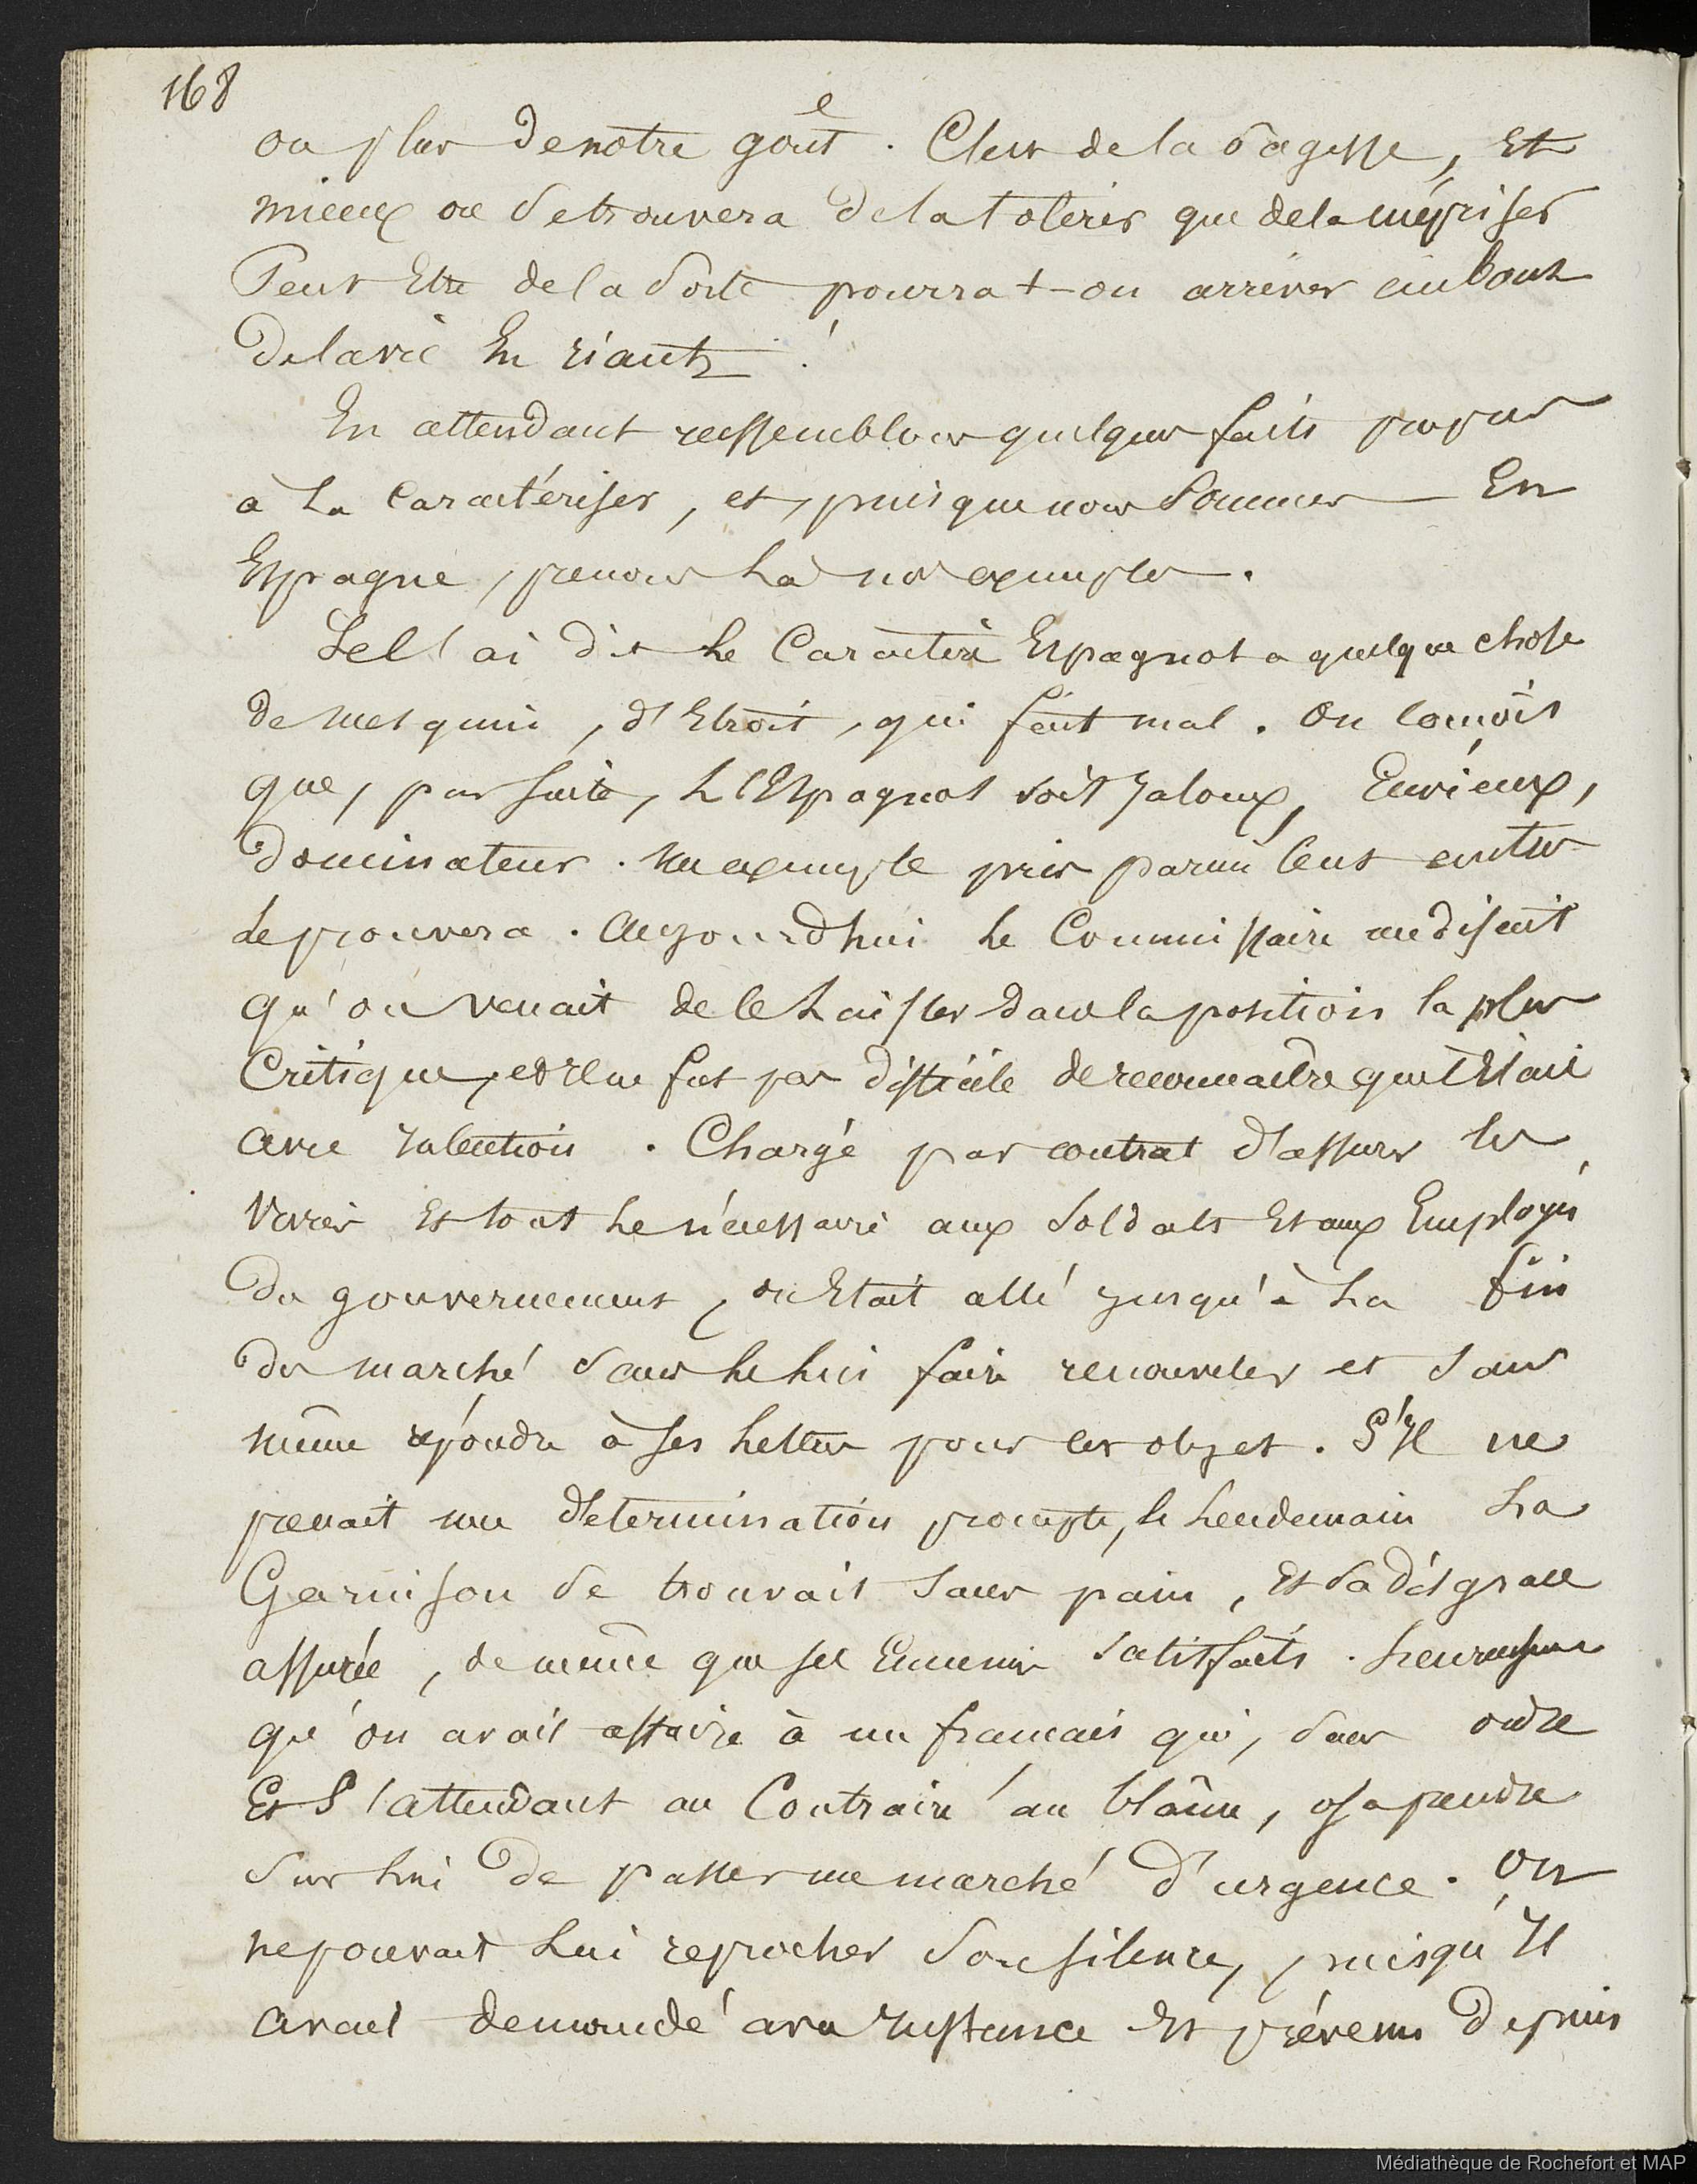 168
ou plus de notre goût. C'est de la sagesse, Et
mieux on se trouvera de la tolérer que de la mépriser
Peut Etre de la sorte pourra t-on arriver au bout
de la vie En riant !
En attendant rassemblons quelques faits propres
à La Caractériser, et, puisque nous Sommes En
Espagne, prenons Là nos exemples.
Je l'ai dit Le Caractère Espagnol a quelque chose
de mesquin, d'Etroit, qui fait mal. On conçoit
que, par suite, L'Espagnol soit Jaloux, Envieux,
dominateur. Un exemple pris parmi Cent autres
Le prouvera. Aujourd'hui Le Commissaire me disait
qu'on venait de le Laisser dans la position la plus
Critique, et Il ne fut pas difficile de reconnaître que c'Etait
avec Intention. Chargé par contrat d'assurer les
vivres Et tout Le nécessaire aux Soldats Et aux Employés
du gouvernement, on Etait allé jusqu'à La fin
du marché sans Le Lui faire renouveler et sans
même répondre à ses Lettres pour cet objet. S'Il ne
prenait une détermination prompte, le Lendemain La
Garnison se trouvait sans pain, Et sa disgrace
assurée, de même que ses Ennemis satisfaits. heureusement
qu'on avait affaire à un français qui, sans ordre
Et S'attendant au Contraire au blâme, osa prendre
sur Lui de passer un marché d'urgence. On
ne pouvait Lui reprocher son silence, puisqu'Il
avait demandé avec Instance Et prévenu depuis
Médiathèque de Rochefort et MAP